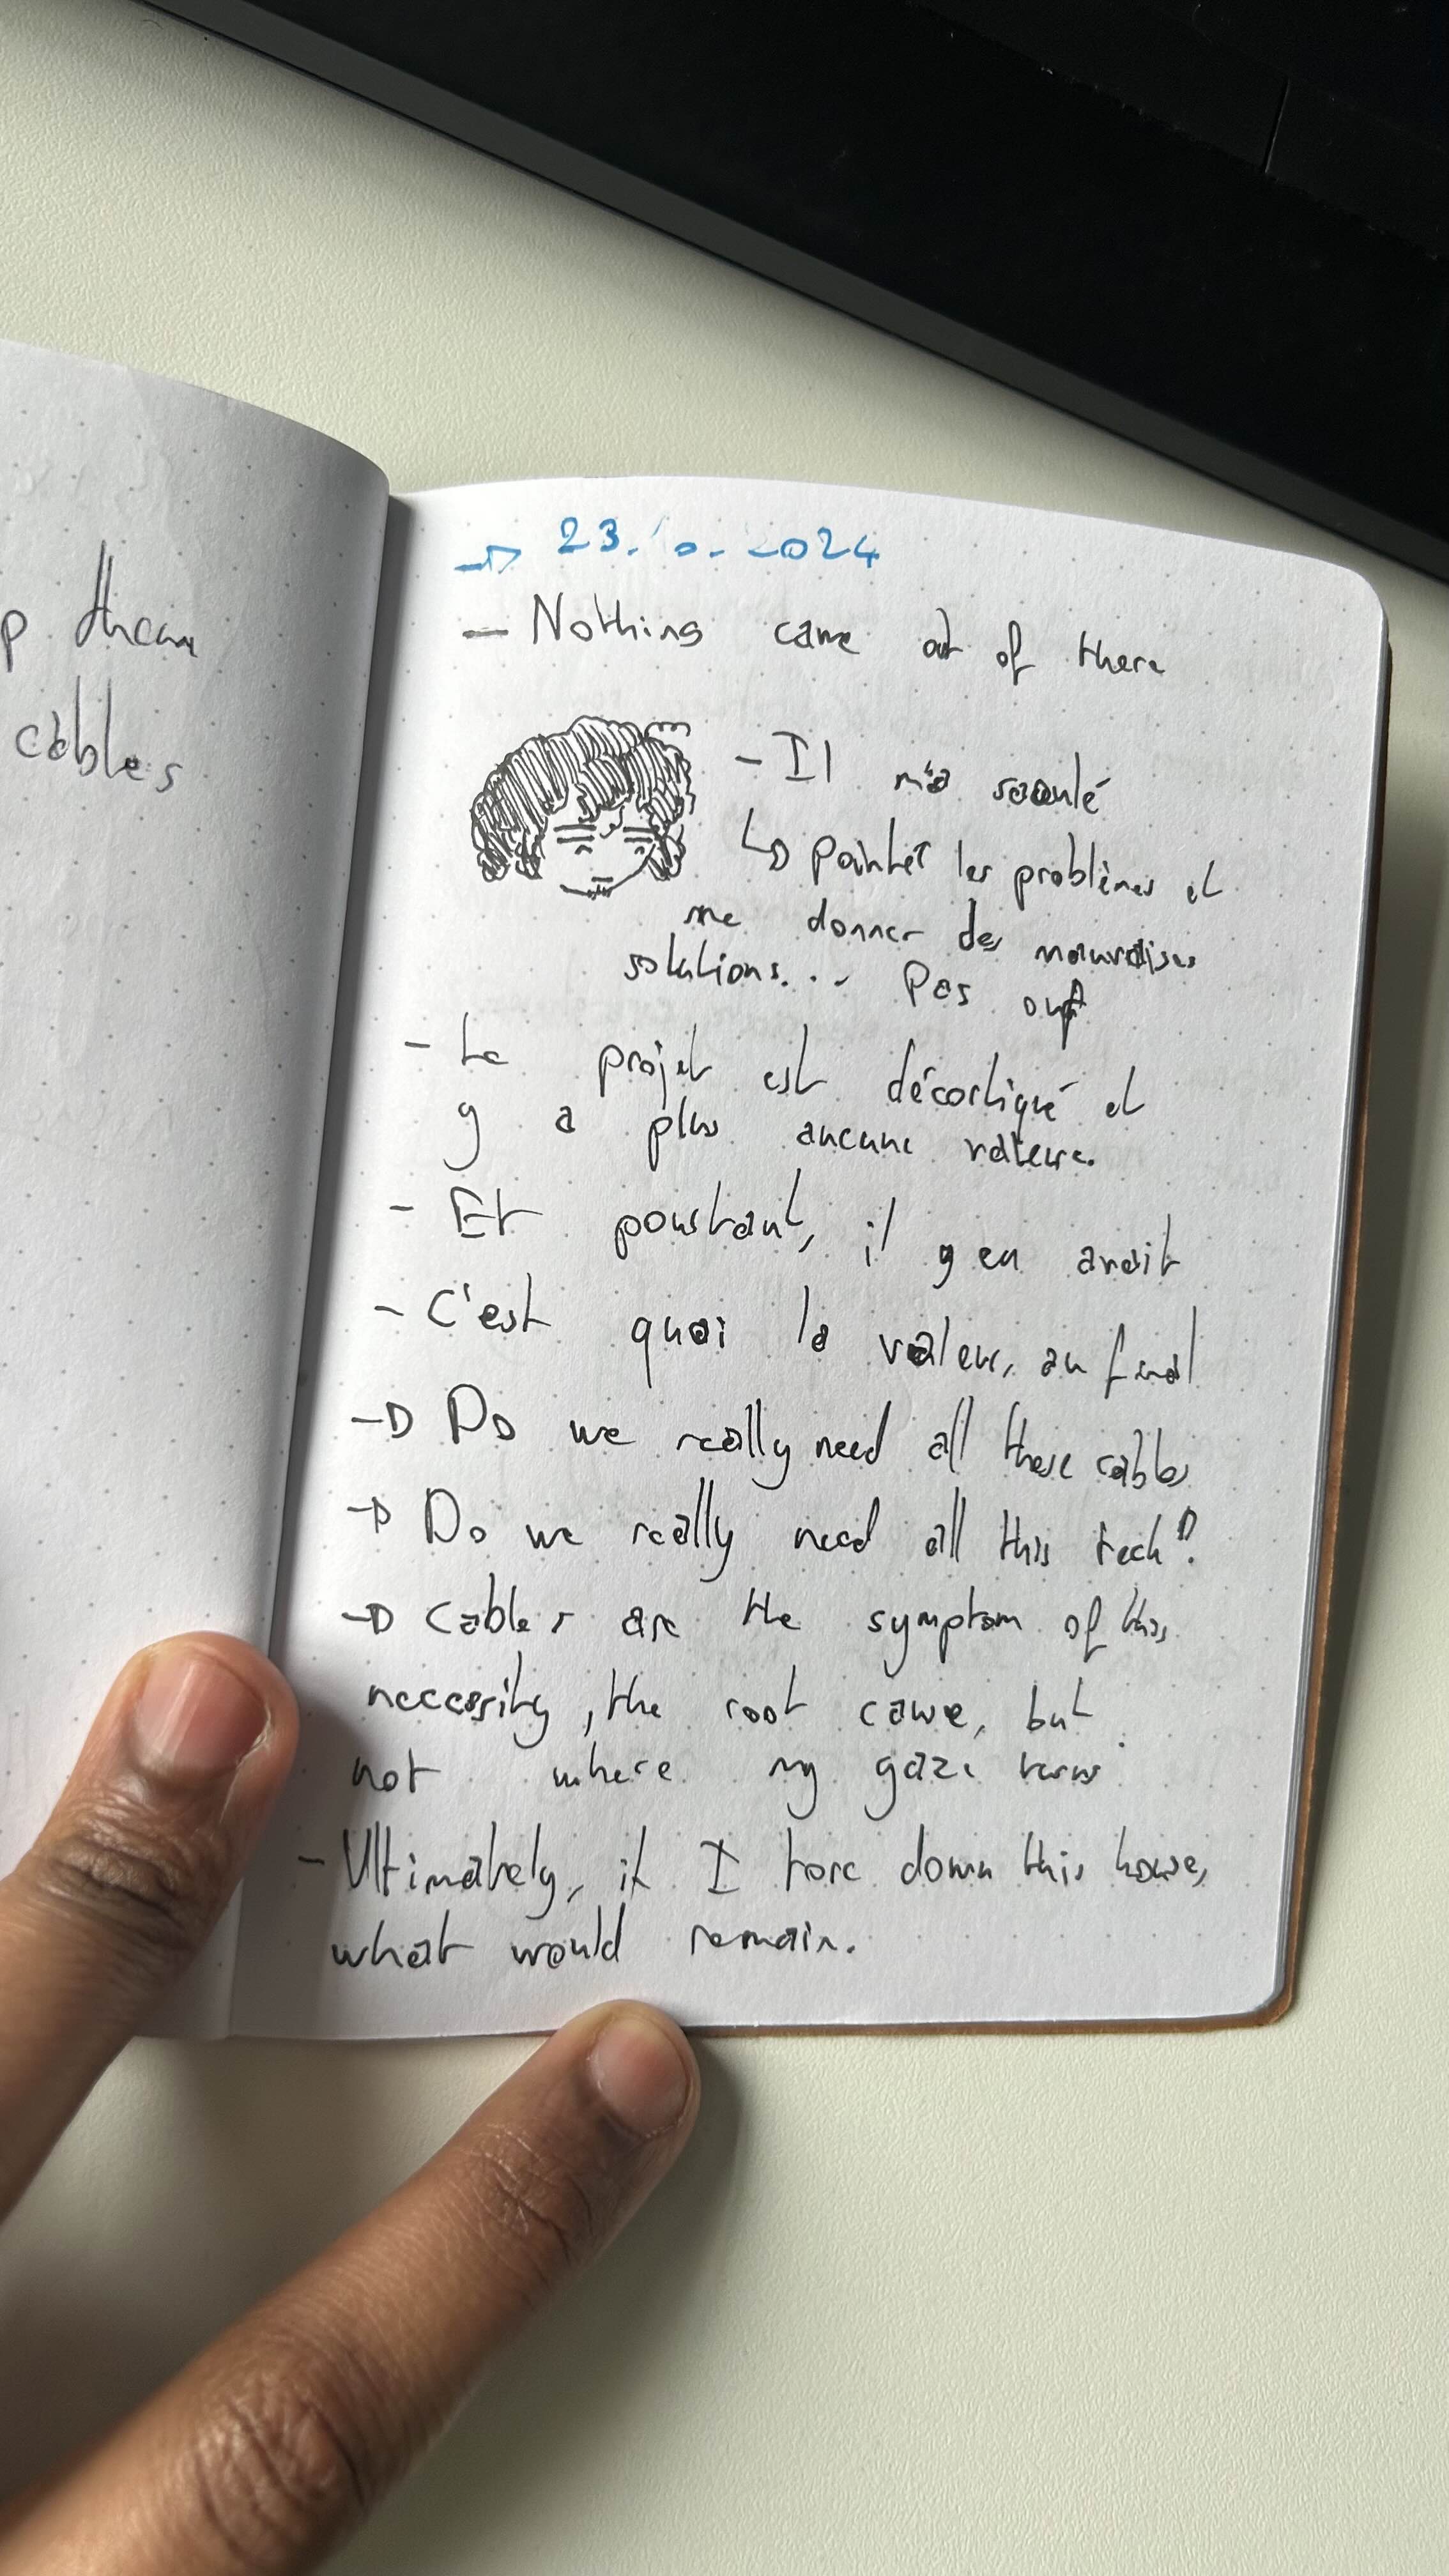 p them
cables
→ 23.10.2024
- Nothing came out of there
- Il m'a saoulé
↳ pointer les problèmes et
me donner des mauvaises
solutions... Pas ouf
- Le projet est décortiqué et
y a plus aucune valeur.
- Et pourtant, il y en avait
- C'est quoi la valeur, au final
→ Do we really need all these cables
→ Do we really need all this tech?
→ Cables are the symptom of this
necessity, the root cause, but
not where my gaze turns
- Ultimately, if I tore down this house,
what would remain.